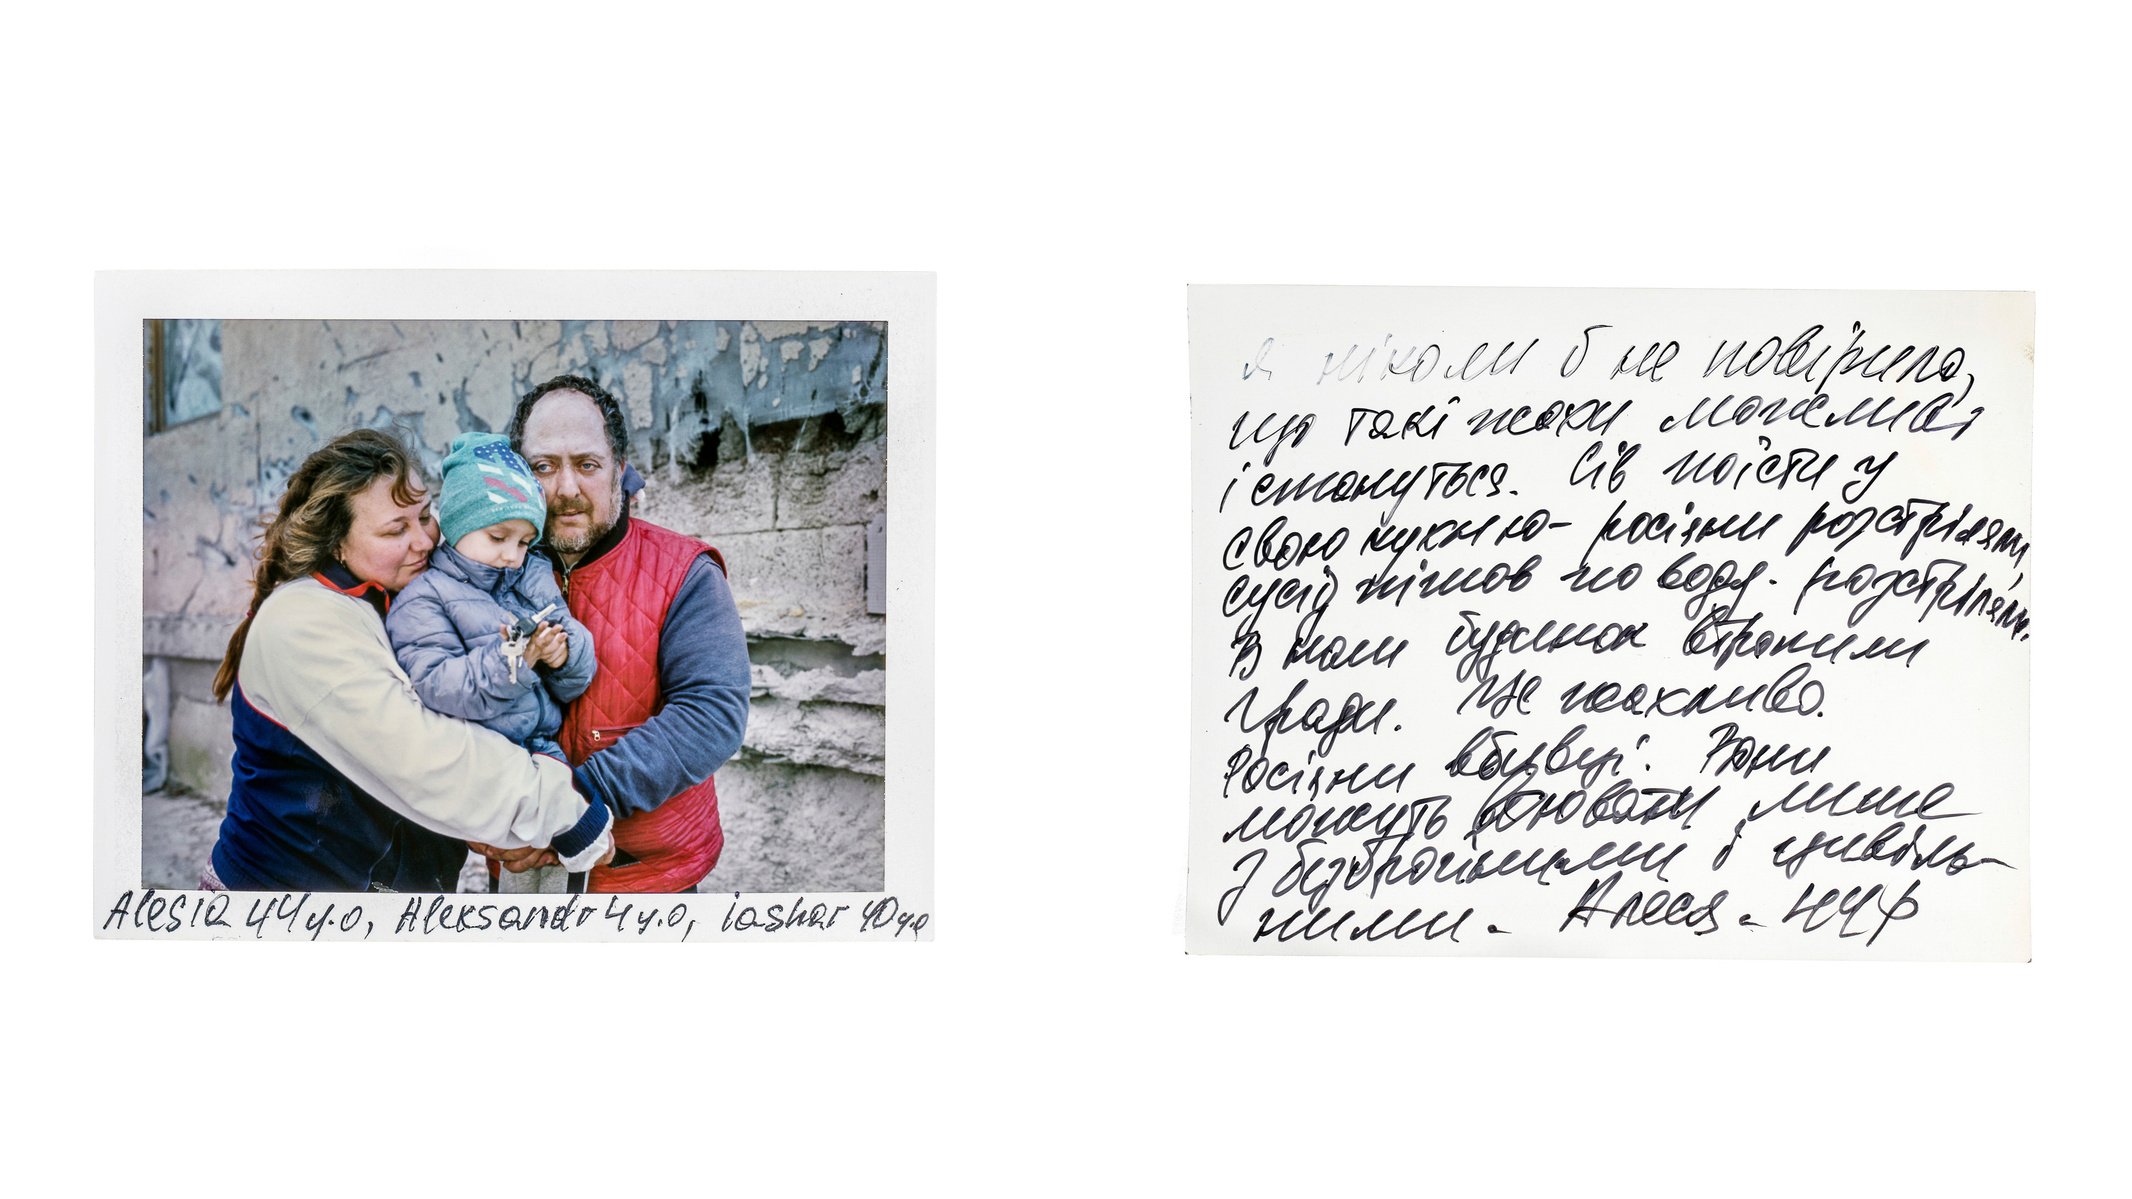 Alesia 44 y.o, Aleksandr 4 y.o, iashar 40 y.o
Я ніколи б не повірила,
що такі жахи можливі і
і стануться. Сів поїсти у
свою кухню - росіяни розстріляли,
сусід пішов по воду - розстріляли.
В наш будинок втрапили
Гради. Це жахливо.
Росіяни вбивці. Вони
можуть воювати лише
з беззбройними і цивіль-
ними. Алеся - 44 р